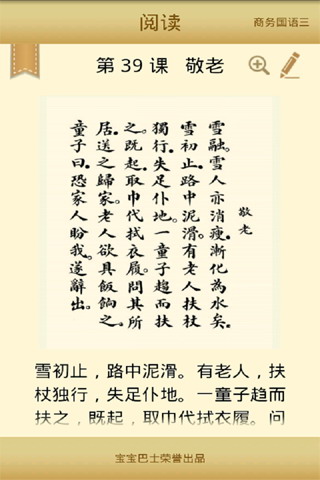 阅读
商务国语三
第 39 课 敬老
敬老
雪融。雪人亦消瘦。漸化為水矣。
雪初止。路中泥滑。有老人扶杖
獨行。失足仆地。一童子趨而扶
之。既起。取巾代拭衣履。問其所
居。送之歸家。老人欲具飯餉之。
童子曰。恐家人盼我。遂辭出。
雪初止，路中泥滑。有老人，扶
杖独行，失足仆地。一童子趋而
扶之，既起，取巾代拭衣履。问
宝宝巴士荣誉出品